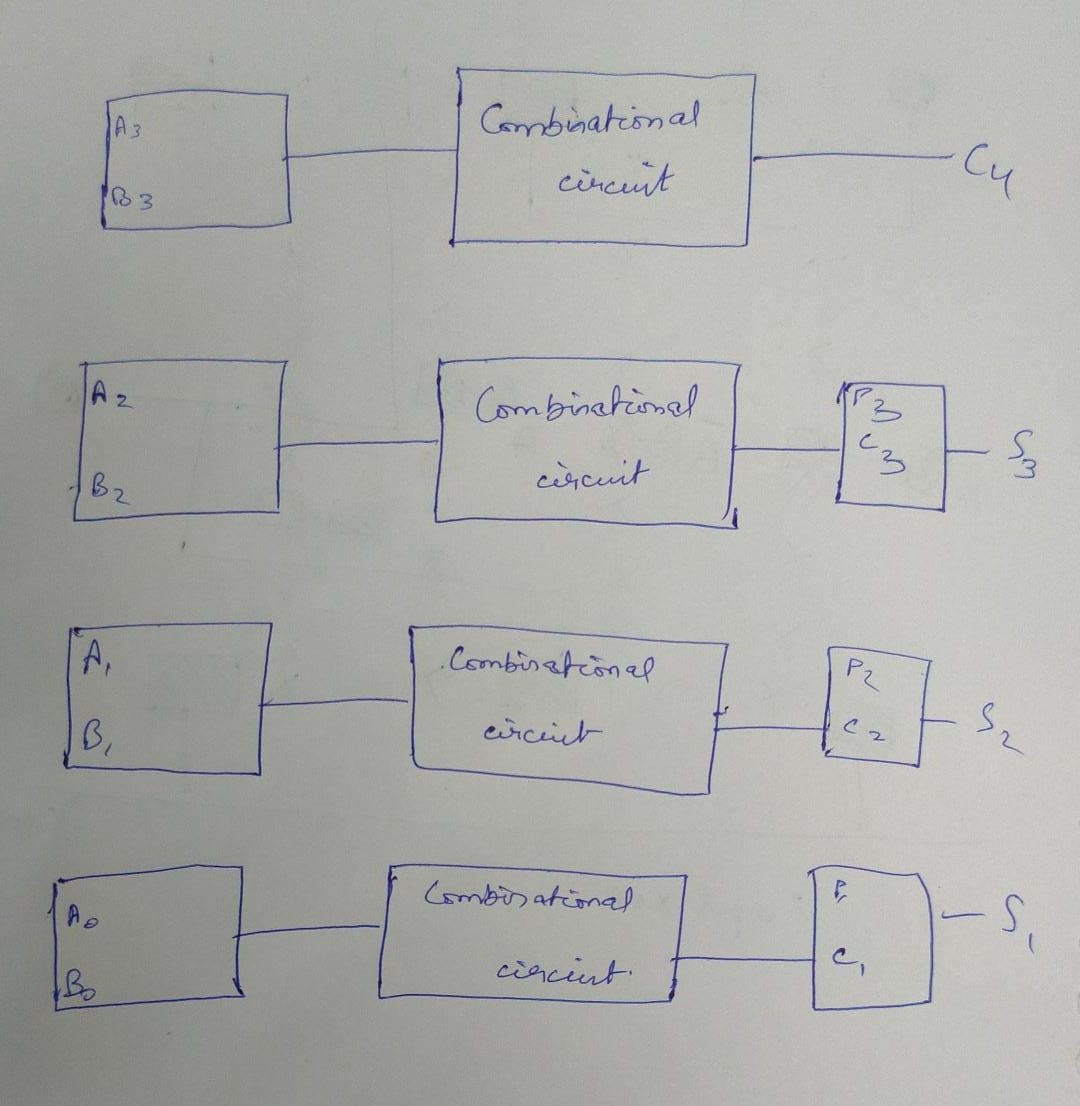 A3
B3
Combinational
circuit
C4
A2
B2
Combinational
circuit
P3
C3
S3
A1
B1
Combinational
circuit
P2
C2
S2
A0
B0
Combinational
circuit
P1
C1
S1